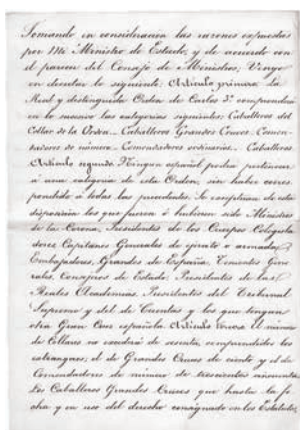 Tomando en consideracion las razones expuestas
por Mi Ministro de Estado, y de acuerdo con
el parecer del Consejo de Ministros, Vengo
en decretar lo siguiente: Artículo primero. La
Real y distinguida Orden de Carlos 3º comprenderá
en lo sucesivo las categorias siguientes: Caballeros del
Collar de la Orden.. Caballeros Grandes Cruces. Comen-
dadores de número. Comendadores ordinarios.. Caballeros
Artículo segundo. Ningun español podrá pertenecer
á una categoria de esta Orden, sin haber corres
pondido á todas las precedentes. Se exceptuan de esta
disposicion los que fueren ó hubieren sido Ministros
de la Corona, Presidentes de los Cuerpos Colegisla
dores, Capitanes Generales de ejército ó armada,
Embajadores, Grandes de España, Tenientes Gene
rales, Consejeros de Estado, Presidentes de las
Reales Academias, Presidentes del Tribunal
Supremo y del de Cuentas y los que tengan
otra Gran Cruz española. Artículo tercero. El número
de Collares no excederá de sesenta, comprendidos los
extrangeros; el de Grandes Cruces de ciento y el de
Comendadores de número de trescientos
Los Caballeros Grandes Cruces que hasta la fe
cha y en uso del derecho consignado en los Estatutos